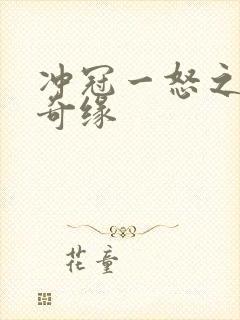 冲冠一怒之
奇缘
花童